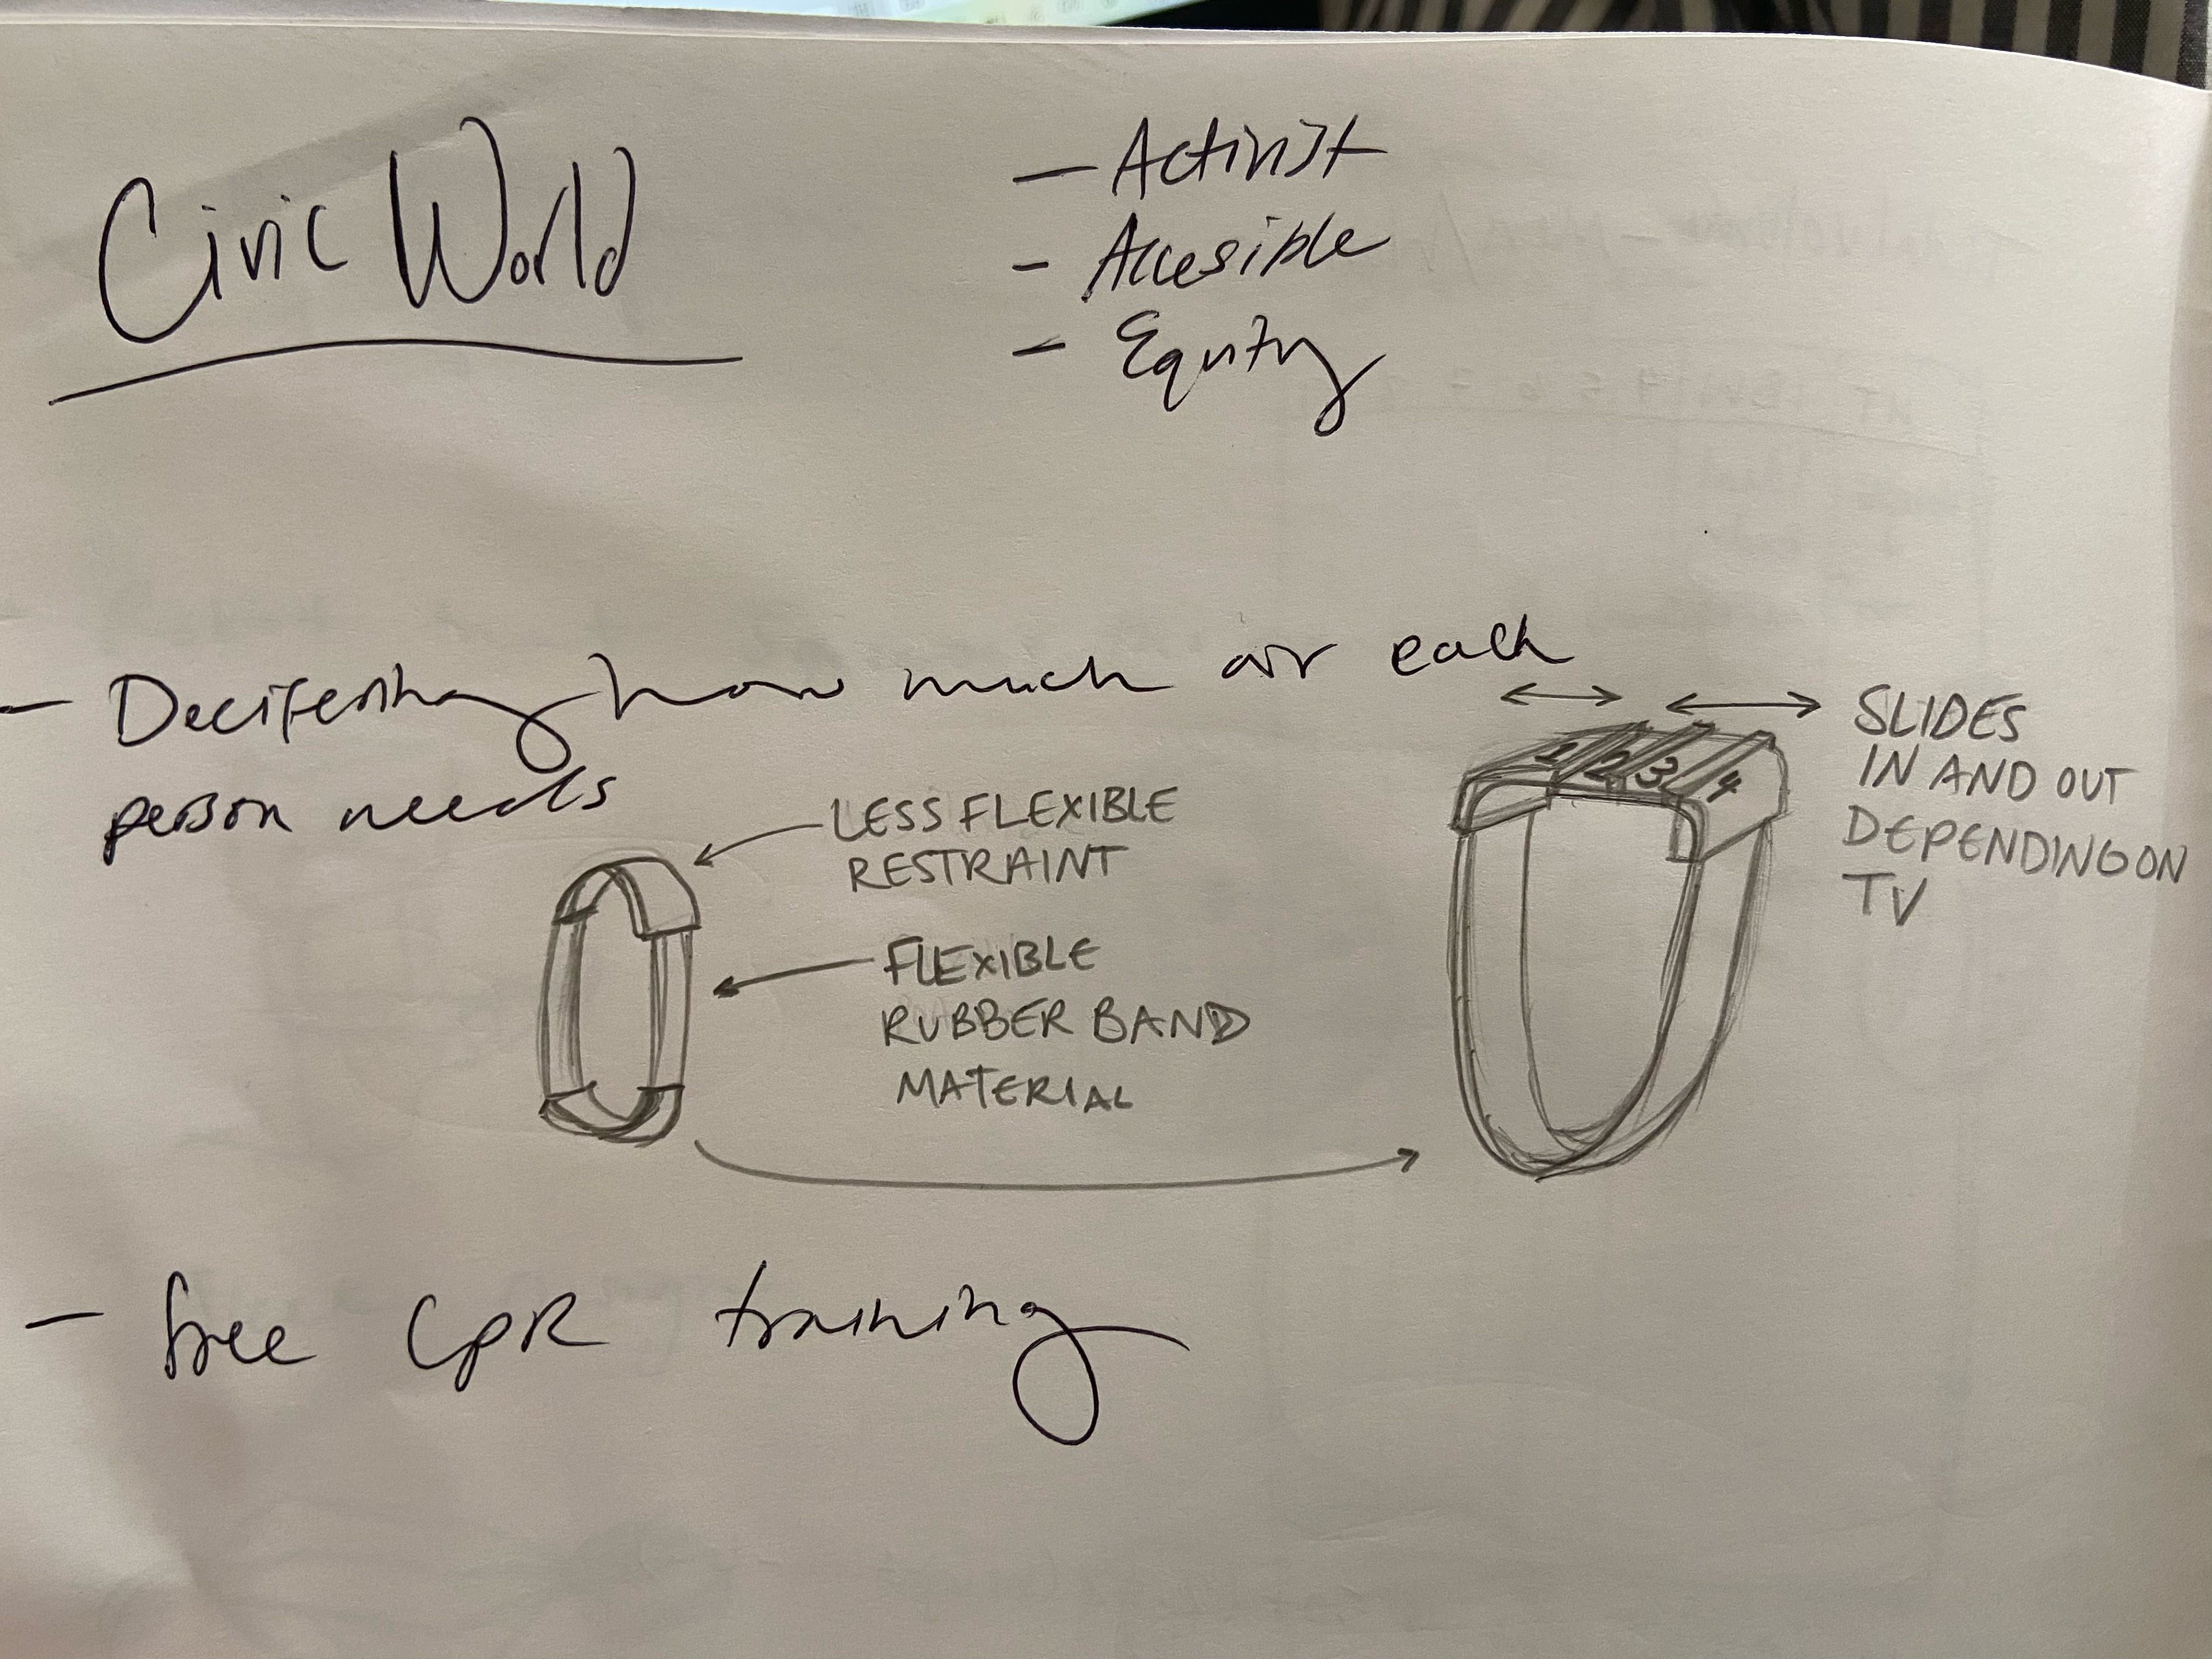 Civic World
- Activist
- Accesible
- Equity
- Decifering how much air each
person needs
LESS FLEXIBLE
RESTRAINT
FLEXIBLE
RUBBER BAND
MATERIAL
1 2 3 4
SLIDES
IN AND OUT
DEPENDING ON
TV
- free CPR training